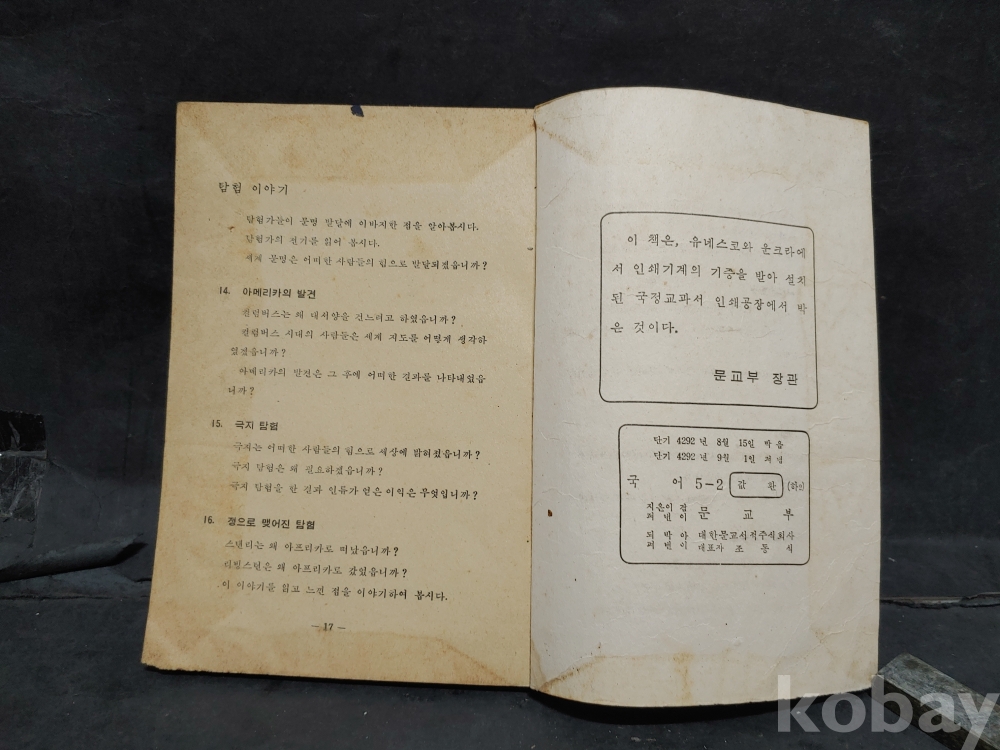 탐험 이야기
탐험가들이 문명 발달에 이바지한 점을 알아봅시다.
탐험가의 전기를 읽어 봅시다.
세계 문명은 어떠한 사람들의 힘으로 발달되겠읍니까?
14. 아메리카의 발견
컬럼버스는 왜 대서양을 건느려고 하였읍니까?
컬럼버스 시대의 사람들은 세계 지도를 어떻게 생각하
였겠읍니까?
아메리카의 발견은 그 후에 어떠한 결과를 나타내었읍
니까?
15. 극지 탐험
극지는 어떠한 사람들의 힘으로 세상에 밝혀졌읍니까?
극지 탐험은 왜 필요하겠읍니까?
극지 탐험을 한 결과 인류가 얻은 이익은 무엇입니까?
16. 정으로 맺어진 탐험
스탠리는 왜 아프리카로 떠났읍니까?
리빙스턴은 왜 아프리카로 갔었읍니까?
이 이야기를 읽고 느낀 점을 이야기하여 봅시다.
— 17 —
이 책은, 유네스코와 운크라에
서 인쇄기계의 기증을 받아 설치
된 국정교과서 인쇄공장에서 박
은 것이다.
문교부 장관
단기 4292년 8월 15일 박음
단기 4292년 9월 1일 펴냄
국 어 5-2 값 환
지은이 겸
펴낸이 문 교 부
되박아
펴낸이 대한문교서적주식회사
대표자 조 동 식
kobay